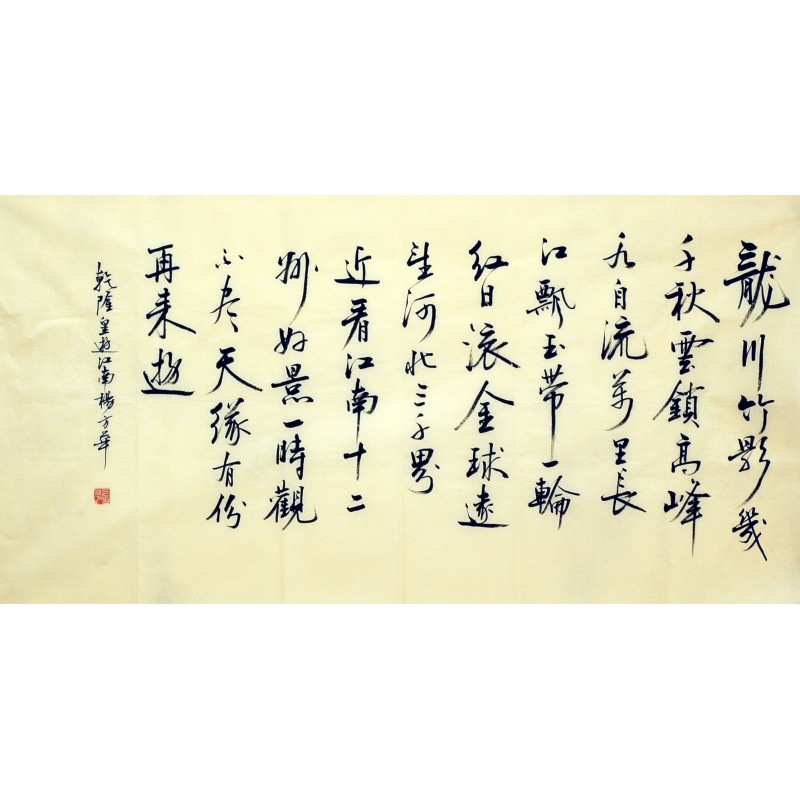 龍川竹影幾
千秋雲鎖高峰
水自流萬里長
江飄玉带一輪
红日滚金球遠
望河北三千界
近看江南十二
州好景一時觀
不尽天缘有份
再来遊
乾隆皇遊江南楊方華